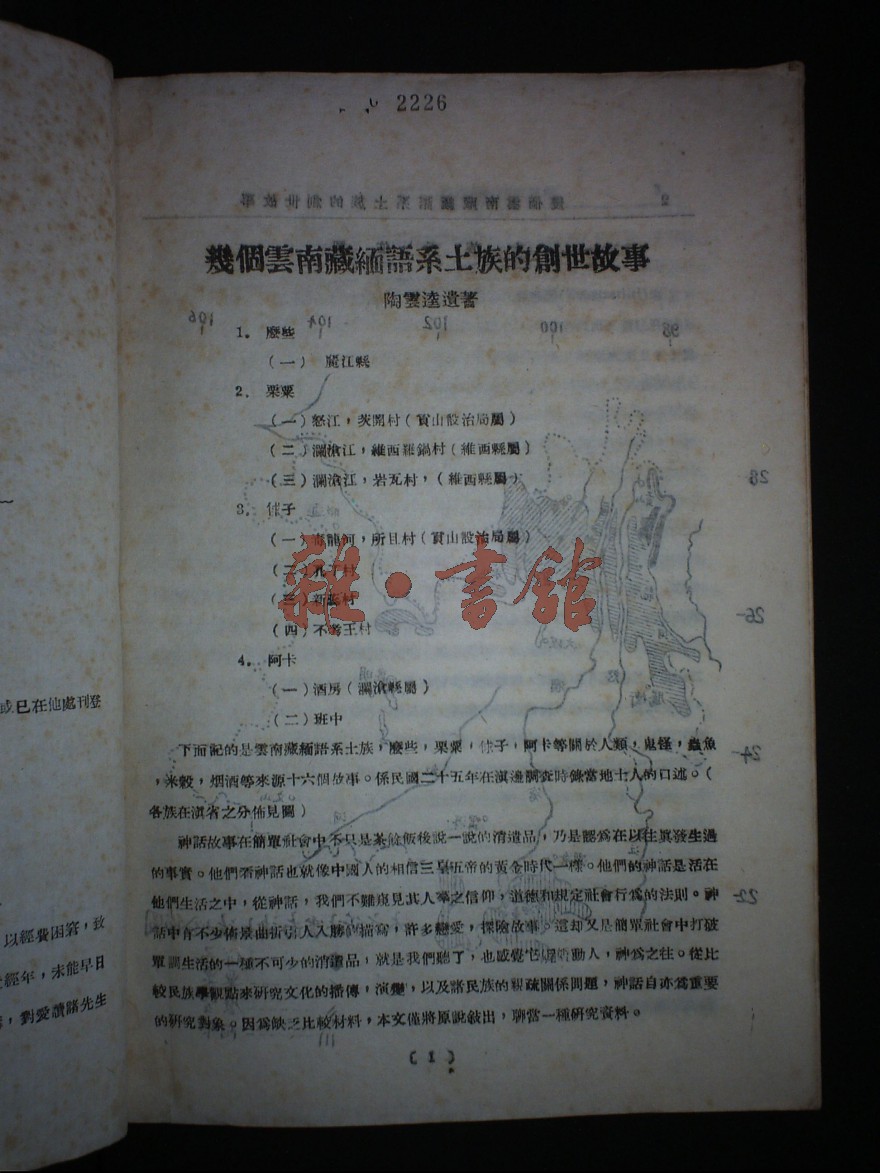 2226
幾個雲南藏緬語系土族的創世故事
陶雲逵遺著
1. 麼些
(一) 麗江縣
2. 栗粟
(一)怒江,茨開村(貢山設治局屬)
(二)瀾滄江,維西羅鍋村(維西縣屬)
(三)瀾滄江,岩瓦村,(維西縣屬)
3. 俅子
(一)毒龍河,所且村(貢山設治局屬)
(二)孔丁村
(三)新蕊村
(四)不考王村
4. 阿卡
(一)酒房(瀾滄縣屬)
(二)班中
下面記的是雲南藏緬語系土族,麼些,栗粟,俅子,阿卡等關於人類,鬼怪,蟲魚
,米穀,烟酒等來源十六個故事。係民國二十五年在滇邊調查時錄當地土人的口述。(
各族在滇省之分佈見圖)
神話故事在簡單社會中不只是茶餘飯後說一說的消遣品,乃是認爲在以往眞發生過
的事實。他們看神話也就像中國人的相信三皇五帝的黃金時代一樣。他們的神話是活在
他們生活之中,從神話,我們不難窺見其人羣之信仰,道德和規定社會行爲的法則。神
話中有不少佈景曲折引人入勝的描寫,許多戀愛,探險故事。這却又是簡單社會中打破
單調生活的一種不可少的消遣品,就是我們聽了,也感覺它是活動人,神爲之往。從比
較民族學觀點來研究文化的播傳,演變,以及諸民族的親疏關係問題,神話自亦爲重要
的研究對象。因爲缺乏比較材料,本文僅將原說敍出,聊當一種研究資料。
(1)
或已在他處刊登
以經費困窘,致
經年,未能早日
,對愛讀諸先生
雜·書館